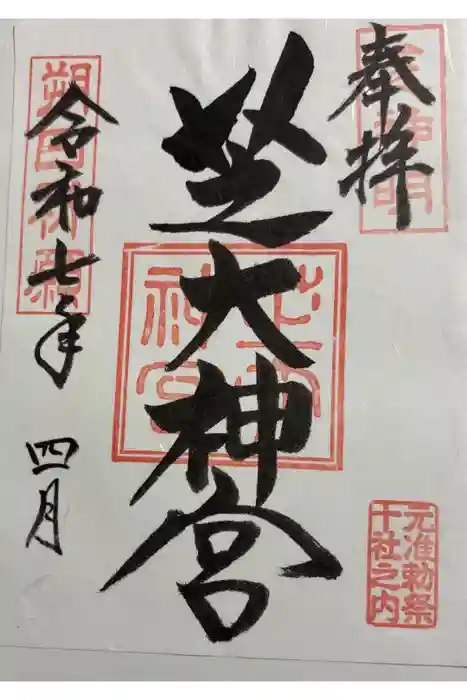 奉拝
芝大神宮
令和七年
四月
朔日祈願
元准勅祭
十社之内